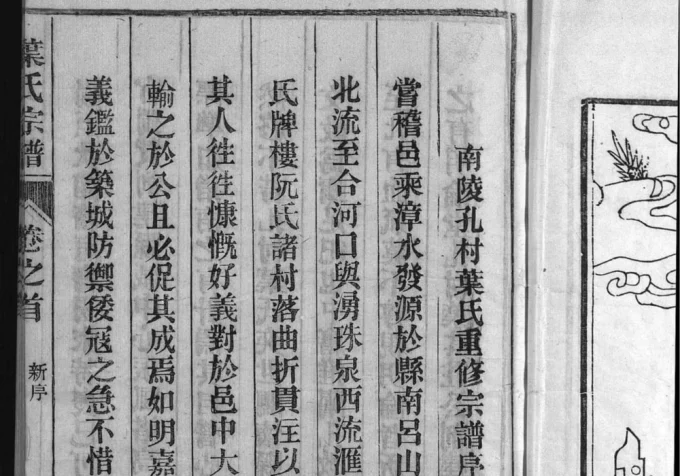 南陵孔村葉氏重修宗譜序
嘗稽邑乘漳水發源於縣南呂山
北流至合河口與湧珠泉西流滙
氏牌樓阮氏諸村落曲折貫注以
其人徃徃慷慨好義對於邑中大
輸之於公且必促其成焉如明嘉
義鑑於築城防禦倭冦之急不惜
葉氏宗譜
卷之首
新序